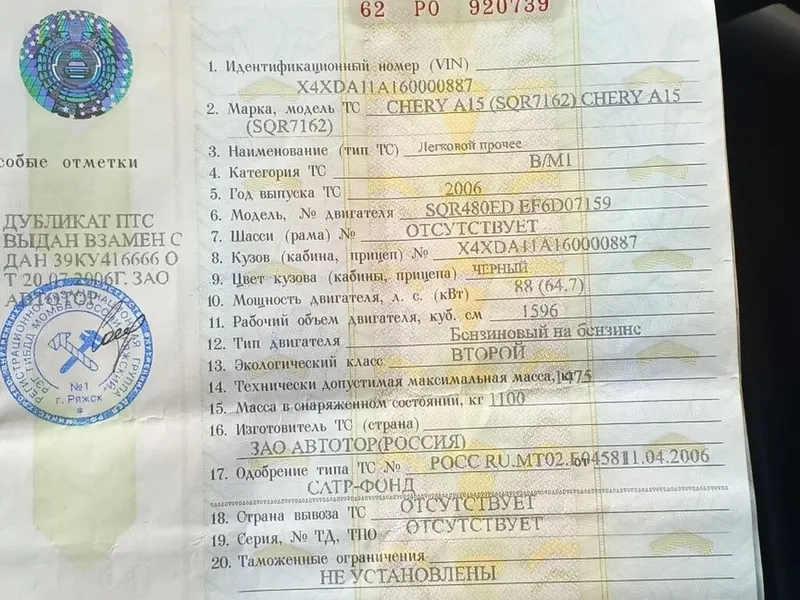 62 РО 920739
1. Идентификационный номер (VIN)
X4XDA11A160000887
2. Марка, модель ТС CHERY A15 (SQR7162) CHERY A15
(SQR7162)
3. Наименование (тип ТС) Легковой прочее
4. Категория ТС B/M1
5. Год выпуска ТС 2006
6. Модель, № двигателя SQR480ED EF6D07159
7. Шасси (рама) № ОТСУТСТВУЕТ
8. Кузов (кабина, прицеп) № X4XDA11A160000887
9. Цвет кузова (кабины, прицепа) ЧЕРНЫЙ
10. Мощность двигателя, л. с. (кВт) 88 (64.7)
11. Рабочий объем двигателя, куб. см 1596
12. Тип двигателя Бензиновый на бензине
13. Экологический класс ВТОРОЙ
14. Технически допустимая максимальная масса, кг 1475
15. Масса в снаряженном состоянии, кг 1100
16. Изготовитель ТС (страна)
ЗАО АВТОТОР(РОССИЯ)
17. Одобрение типа ТС № РОСС RU.МТ02. от 11.04.2006
САТР-ФОНД
18. Страна вывоза ТС ОТСУТСТВУЕТ
19. Серия, № ТД, ТПО ОТСУТСТВУЕТ
20. Таможенные ограничения
НЕ УСТАНОВЛЕНЫ
собые отметки
ДУБЛИКАТ ПТС
ВЫДАН ВЗАМЕН С
ДАН 39КУ416666 О
Т 20.07.2006Г. ЗАО
АВТОТОР
№1
г. Ряжск